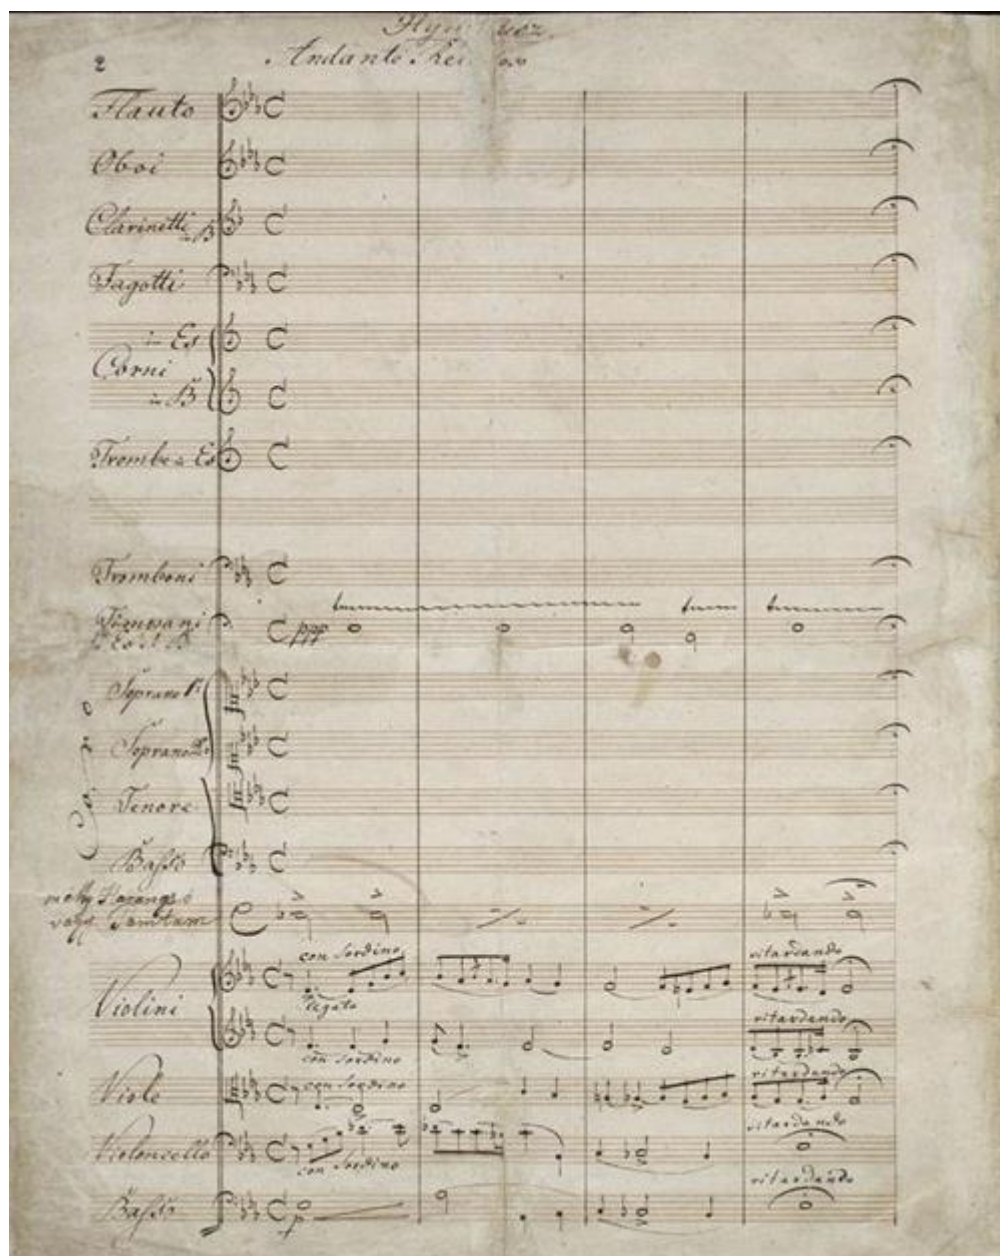 2
Andante
Flauto
Oboi
Clarinetti in B
Fagotti
in Es
Corni
in B
Trombe in Es
Tromboni
Timpani
ppp
Coro
Soprano
Soprano
Tenore
Basso
mély Harang
vagy Tamtam
Violini
con Sordino
legato
ritardando
con Sordino
ritardando
Viole
con Sordino
ritardando
Violoncello
con Sordino
ritardando
Basso
p
ritardando